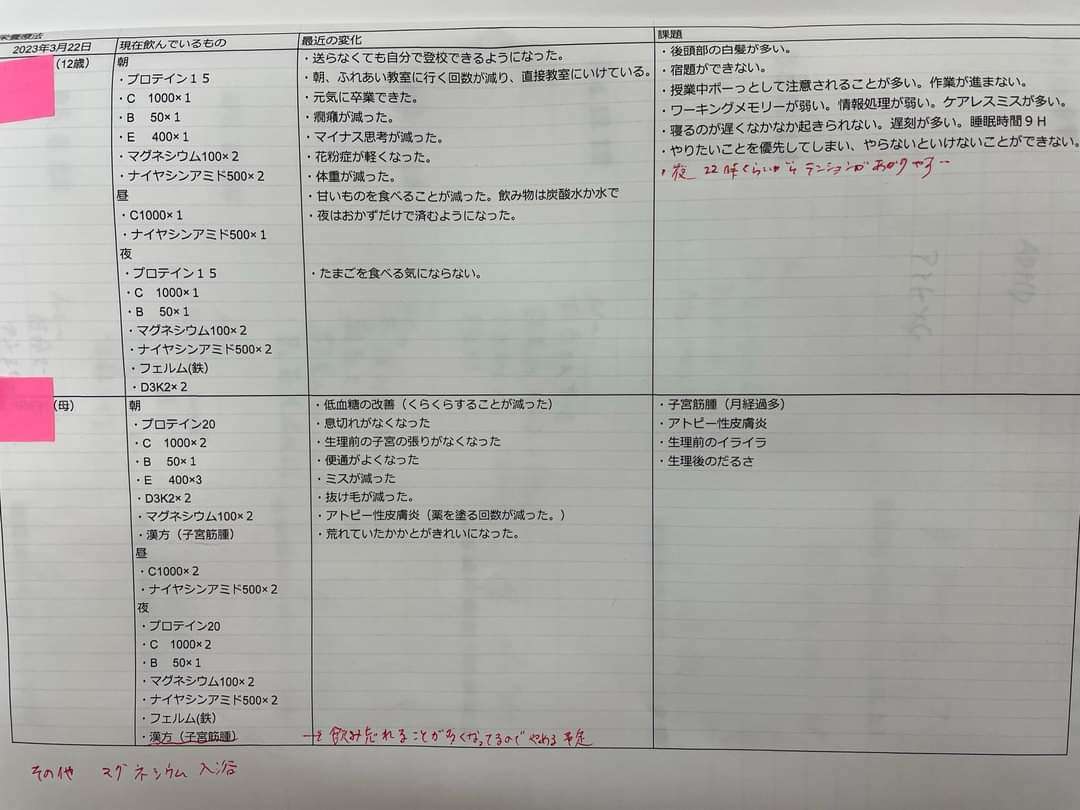 栄養療法
2023年3月22日
現在飲んでいるもの
最近の変化
課題
(12歳)
朝
・プロテイン15
・C 1000×1
・B 50×1
・E 400×1
・マグネシウム100×2
・ナイヤシンアミド500×2
昼
・C1000×1
・ナイヤシンアミド500×1
夜
・プロテイン15
・C 1000×1
・B 50×1
・マグネシウム100×2
・ナイヤシンアミド500×2
・フェルム(鉄)
・D3K2×2
・送らなくても自分で登校できるようになった。
・朝、ふれあい教室に行く回数が減り、直接教室にいけている。
・元気に卒業できた。
・癇癪が減った。
・マイナス思考が減った。
・花粉症が軽くなった。
・体重が減った。
・甘いものを食べることが減った。飲み物は炭酸水か水で
・夜はおかずだけで済むようになった。
・たまごを食べる気にならない。
・後頭部の白髪が多い。
・宿題ができない。
・授業中ボーっとして注意されることが多い。作業が進まない。
・ワーキングメモリーが弱い。情報処理が弱い。ケアレスミスが多い。
・寝るのが遅くなかなか起きられない。遅刻が多い。睡眠時間9H
・やりたいことを優先してしまい、やらないといけないことができない。
・夜 22時くらいから テンションがあがりやすー
(母)
朝
・プロテイン20
・C 1000×2
・B 50×1
・E 400×3
・D3K2×2
・マグネシウム100×2
・漢方（子宮筋腫）
昼
・C1000×2
・ナイヤシンアミド500×2
夜
・プロテイン20
・C 1000×2
・B 50×1
・マグネシウム100×2
・ナイヤシンアミド500×2
・フェルム(鉄)
・漢方（子宮筋腫）
・低血糖の改善（くらくらすることが減った）
・息切れがなくなった
・生理前の子宮の張りがなくなった
・便通がよくなった
・ミスが減った
・抜け毛が減った。
・アトピー性皮膚炎（薬を塗る回数が減った。）
・荒れていたかかとがきれいになった。
→ 飲み忘れることが多くなってるのでやめる予定
・子宮筋腫（月経過多）
・アトピー性皮膚炎
・生理前のイライラ
・生理後のだるさ
その他 マグネシウム 入浴